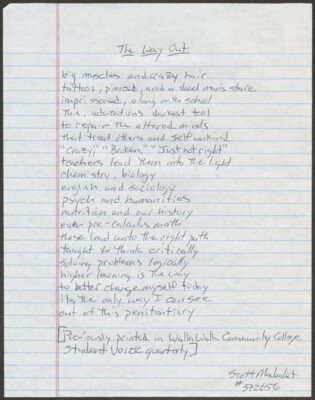 The Way Out
big muscles and crazy hair
tattoos, pierced, and a dead man's stare
imprisoned, along with school
This, educations darkest tool
to repair the altered minds
that treat others and self unkind
"Crazy," "Broken," "Just not right"
teachers lead them into the light
chemistry, biology
english and sociology
psych and humanities
nutrition and our history
even pre-calculus math
these lead unto the right path
taught to think critically
solving problems logically
higher learning is the way
to better change myself today
its the only way I can see
out of this penitentiary
[Previously printed in Walla Walla Community College
Student Voice quarterly]
Scott
#372656